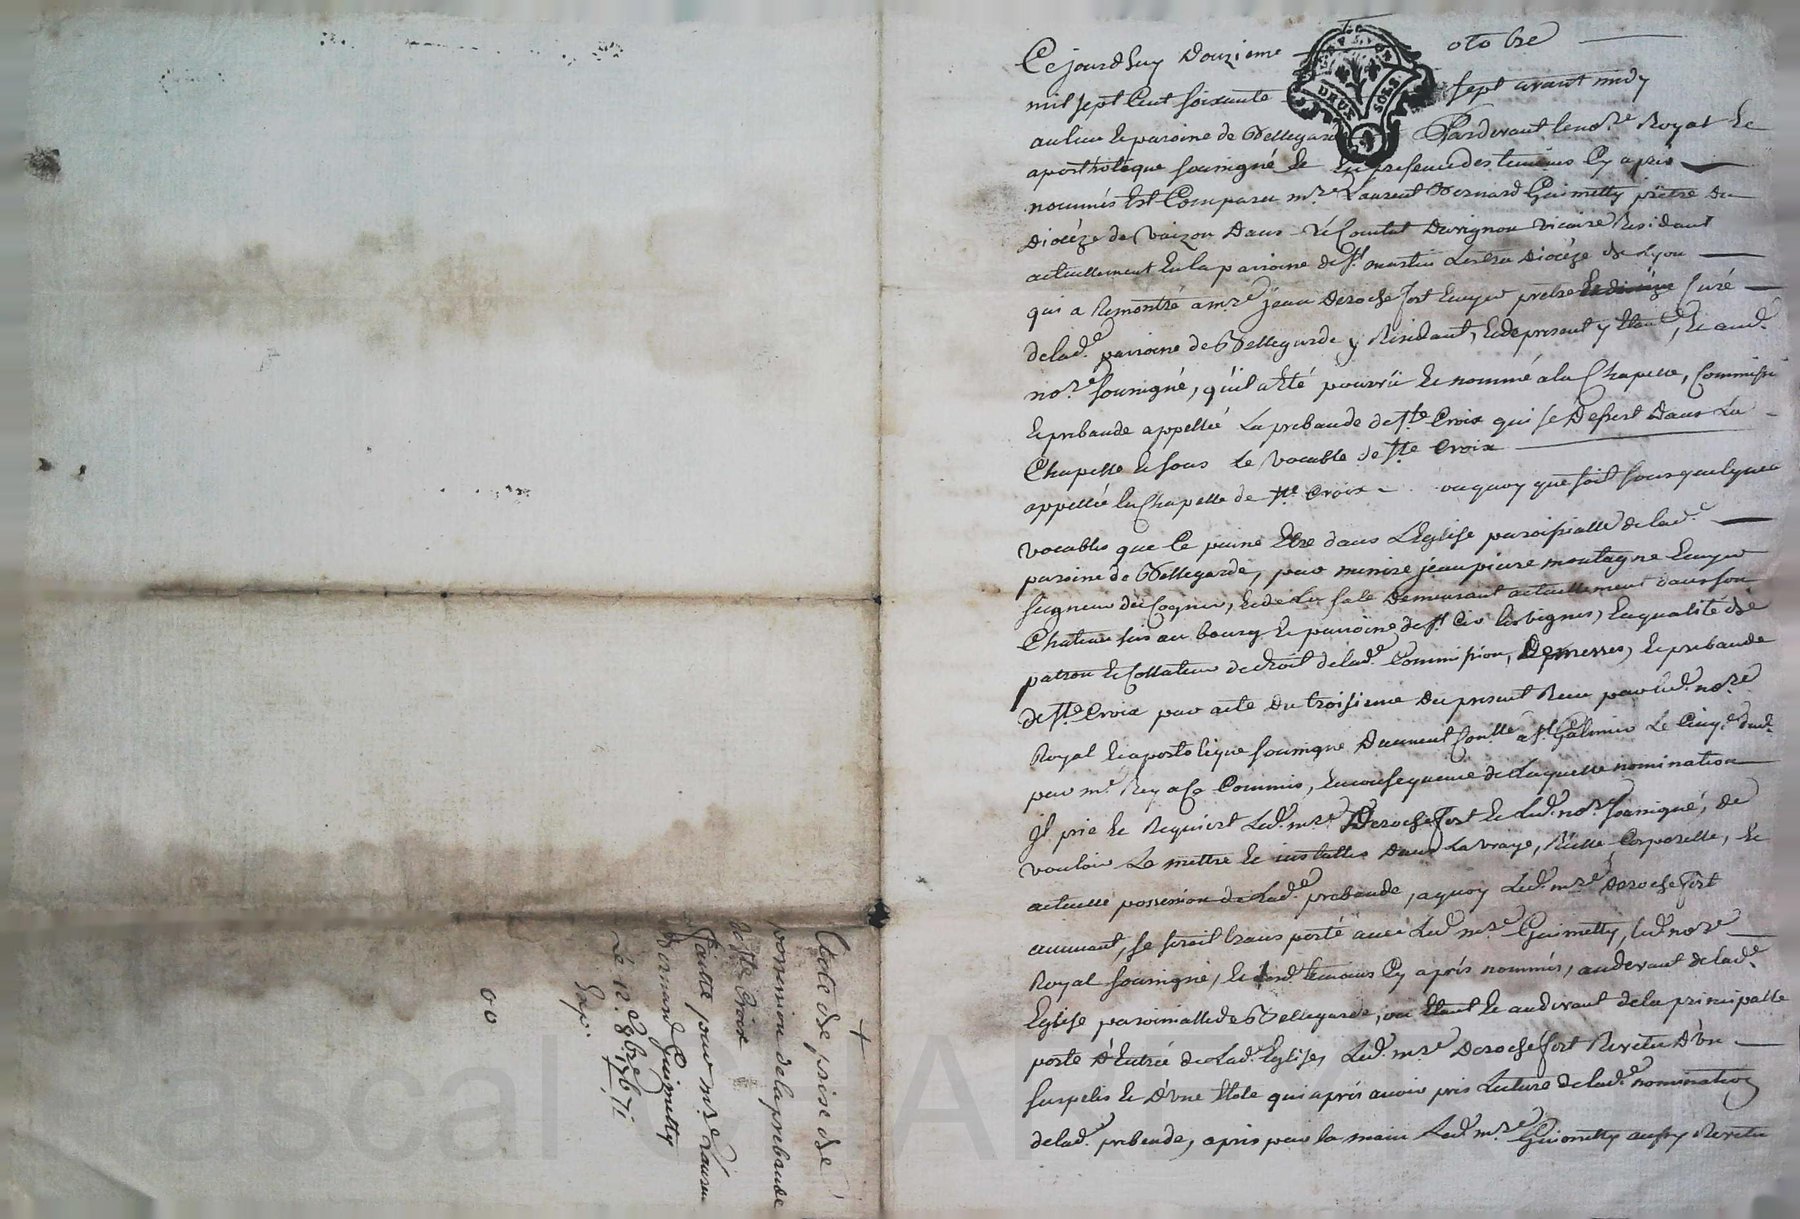 Cejourdhuy douzieme otobre
mil sept cent soixante sept avant midy
au lieu et paroine de Bellegarde Pardevant le no.re Royal et
apostholeque sousigné et en presence des temoins cy apres
nommés est comparu m.re Laurent Bernard Guimetty prêtre du
diocéze de Vaizon dans le Comtat Davignon vicaire Residant
actuellement en la paroine de S.t martin Lestra diocéze de Lyon
qui a Remontré a m.re jean Derochefort Ecuyer prêtre curé
de lad.e paroine de Bellegarde y Residant, et de present y étant, et aud.
no.re sousigné, qu'il a été pourvû et nommé a la Chapelle, Commission
et prebande appellée La prebande de S.te Croix qui se dessert dans La
Chapelle et sous le vocable de S.te Croix
appellée la Chapelle de S.te Croix ou quoy que soit sous quelques
vocables que ce puine être dans L'Eglise paroissialle de lad.e
paroine de Bellegarde, par meinre jean pierre montagne Ecuyer
seigneur de Cognier, et de La Sale demeurant actuellement dans son
Chateau sis au bourg et paroine de S.t Cir les vignes, en qualité de
patron et Collateur de droit de lad.e Commission, de messes, et prebande
de S.te Croix par acte du troisieme du present Recu par led. no.re
Royal et apostoleque sousigné duement Con.llé a S.t Galmier Le Cinq.e dud.
par m.r Rey a ce Commis, en consequence de Laquelle nomination
Il prie et Requiert Led. m.re Derochefort et Led. no.re sousigné, de
vouloir Le mettre et installer dans La vraye, Réelle, Corporelle, et
actuelle possession de Lad.e prebande, a quoy Led. m.re Derochefort
aumant, se seroit transporté avec Led. m.re Guimetty, led. no.re
Royal sousigné, et temoins cy aprés nommés, audevant de lad.e
Eglise paroinialle de Bellegarde, ou étant et audevant de la principalle
porte d'Entrée de Lad. Eglise, Led. m.re Derochefort Revetu d'un
surpelis et d'une étole qui aprés avoir pris Lecture de lad.e nomination
de lad.e prebende, a pris par la main Led. m.re Guimetty aussy Revetu
+
Acte de prise de
possession de la prebande
de S.te Croix
Faitte par m.re Lauren
Bernard Guimetty
Le 12. 8bre 1767.
Exp.
00